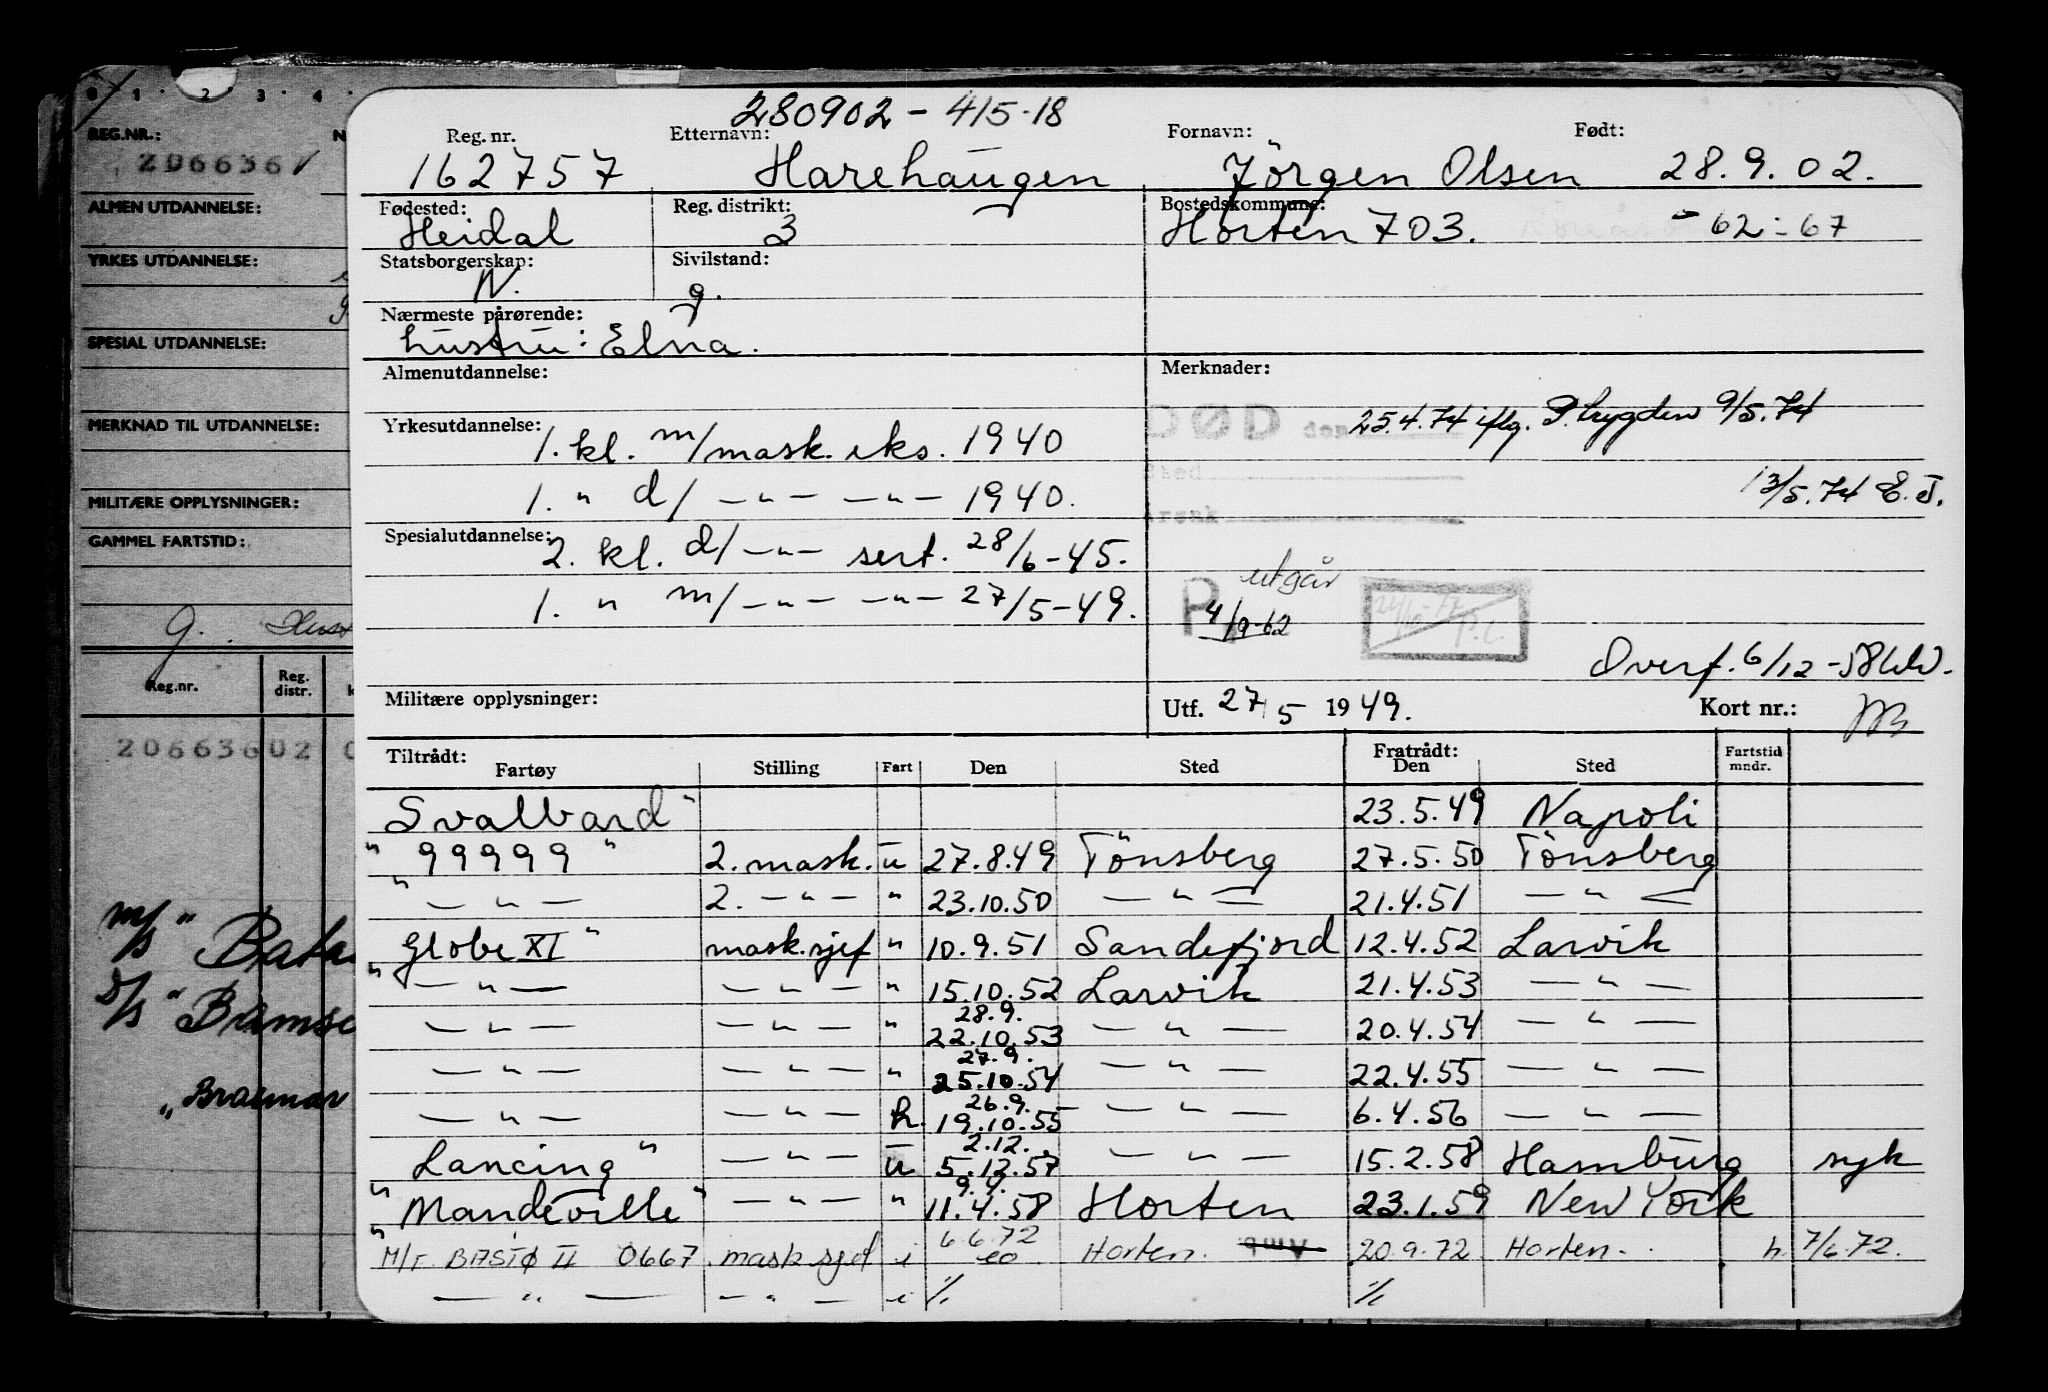 0 1 2 3 4
REG.NR.:
2066361
ALMEN UTDANNELSE:
YRKES UTDANNELSE:
SPESIAL UTDANNELSE:
MERKNAD TIL UTDANNELSE:
MILITÆRE OPPLYSNINGER:
GAMMEL FARTSTID:
g.
Reg.nr. Reg. distr.
20663602
M/S "Bata
D/S "Bamse
"Braemar
280902-415-18
Reg. nr. Etternavn: Fornavn: Født:
162757 Harehaugen Jörgen Olsen 28.9.02.
Fødested: Reg. distrikt: Bostedskommune:
Heidal 3 Horten 703. 62-67
Statsborgerskap: Sivilstand:
N. g.
Nærmeste pårørende:
hustru: Elna.
Almenutdannelse: Merknader:
DØD 25.4.74 iflg. P. trygden 9/5.74
Yrkesutdannelse:
1. kl. m/mask. eks. 1940
13/5.74 E.J.
1. " d/ —"— —"— 1940.
Årsak
Spesialutdannelse:
2. kl. d/ —"— sert. 28/6-45.
utgår
1. " m/ —"— —"— 27/5-49.
P 4/9-62
Overf. 6/12-58
Militære opplysninger: Utf. 27/5 1949. Kort nr.:
Tiltrådt: Fratrådt: Fartstid
Fartøy Stilling Fart Den Sted Den Sted mndr.
Svalbard" 23.5.49 Napoli
"99999" 2. mask. u 27.8.49 Tönsberg 27.5.50 Tönsberg
" —"— 2. —"— " 23.10.50 —"— 21.4.51 —"—
Globe XI" mask.sjef " 10.9.51 Sandefjord 12.4.52 Larvik
" —"— —"— " 15.10.52 Larvik 21.4.53 —"—
28.9.
—"— —"— " 22.10.53 —"— 20.4.54 —"—
27.9.
—"— —"— " 25.10.54 —"— 22.4.55 —"—
26.9.
—"— —"— h. 19.10.55 —"— 6.4.56 —"—
2.12.
Lancing" —"— u 5.12.57 —"— 15.2.58 Hamburg syk
9.4.
"Mandeville" —"— " 11.4.58 Horten 23.1.59 New York
6.6.72
M/F BASTØ II 0667 mask sjef i Horten. 20.9.72 Horten. h. 7/6.72.
—"— —"— i %. %